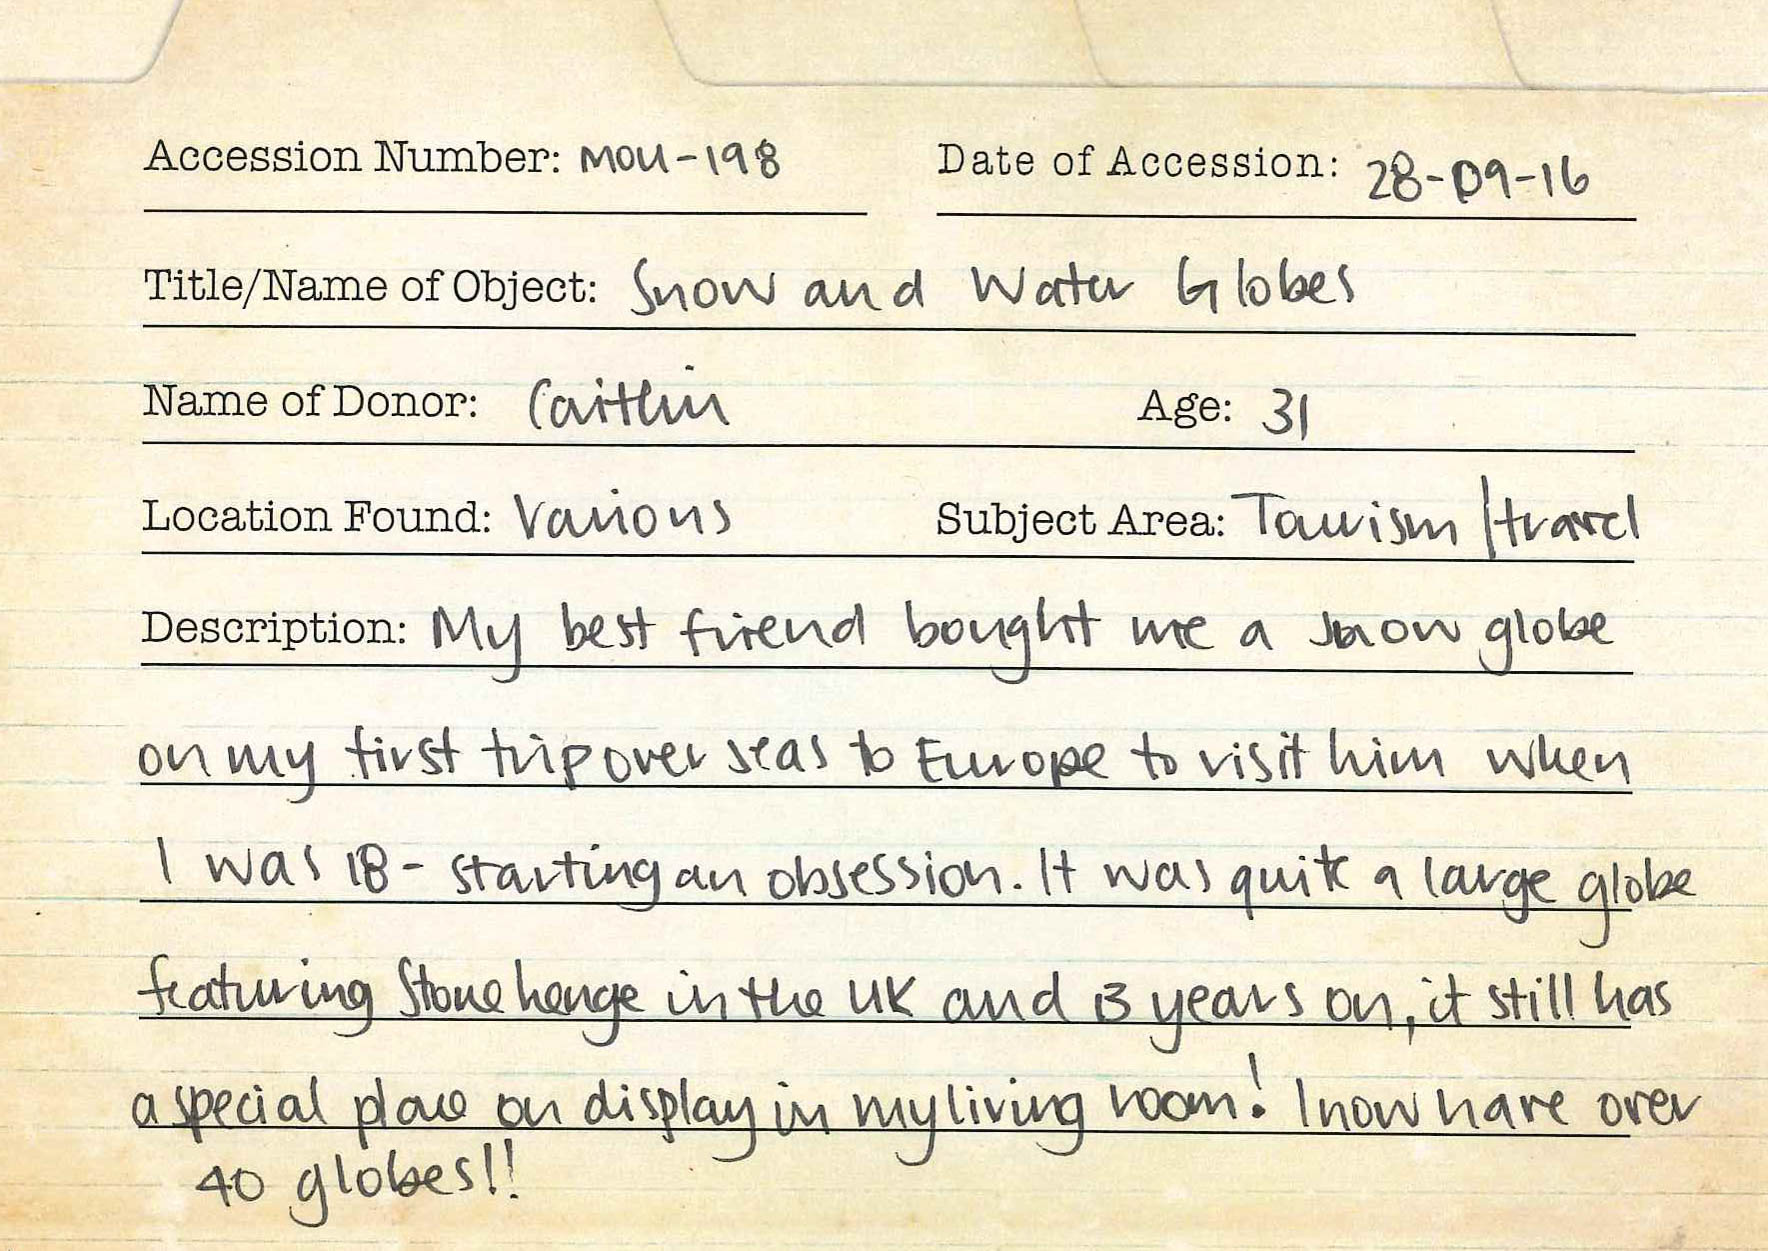 Accession Number: MOU-198 Date of Accession: 28-09-16
Title/Name of Object: Snow and Water Globes
Name of Donor: Caitlin Age: 31
Location Found: Various Subject Area: Tourism/travel
Description: My best firend bought me a snow globe
on my first trip over seas to Europe to visit him when
I was 18 - starting an obsession. It was quite a large globe
featuring Stonehenge in the UK and 13 years on, it still has
a special place on display in my living room! I now have over
40 globes!!